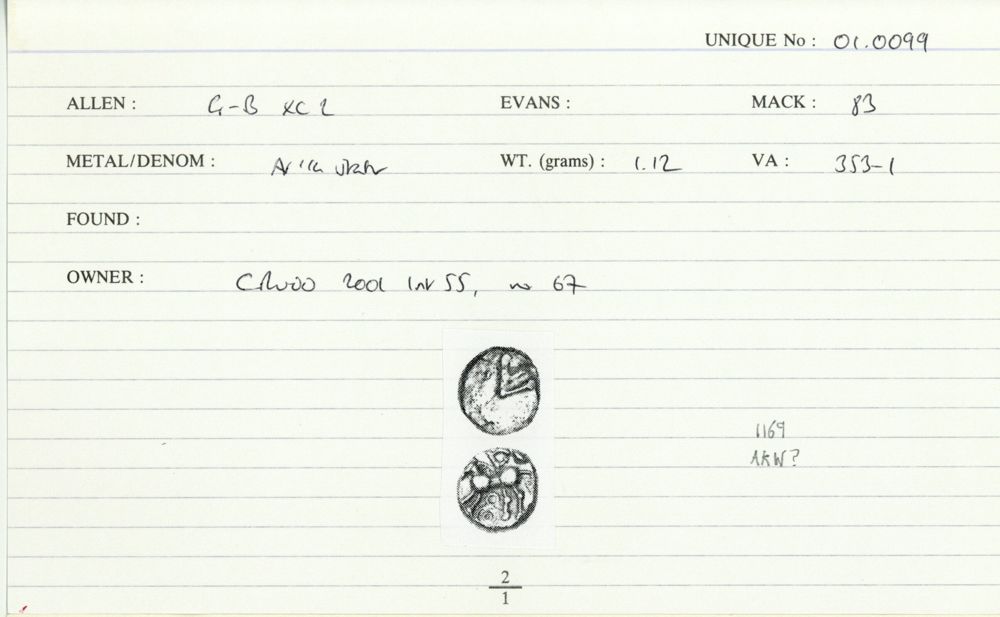 UNIQUE No : 01.0099
ALLEN : G-B XC 2 EVANS : MACK : 83
METAL/DENOM : WT. (grams) : 1.12 VA : 353-1
FOUND :
OWNER : 2001 Inv 55, no 67
1169
AKW?
2
1